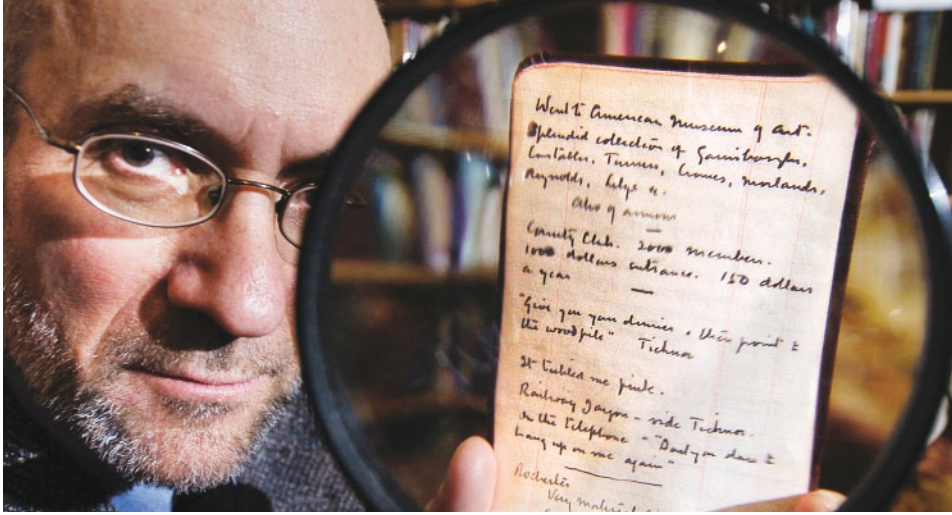 Went to American Museum of Art.
Splendid collection of Gainsboroughs,
Constables, Turners, Cromes, Morlands,
Reynolds,
Also of armour
County Club. 2000 members.
1000 dollars entrance. 150 dollars
a year
"Give you your dinner & then point to
the woodpile" Ticknor
It tickled me pink.
Railway Jargon - vide Ticknor.
On the telephone - "Don't you dare to
hang up on me again"
Rochester
Very